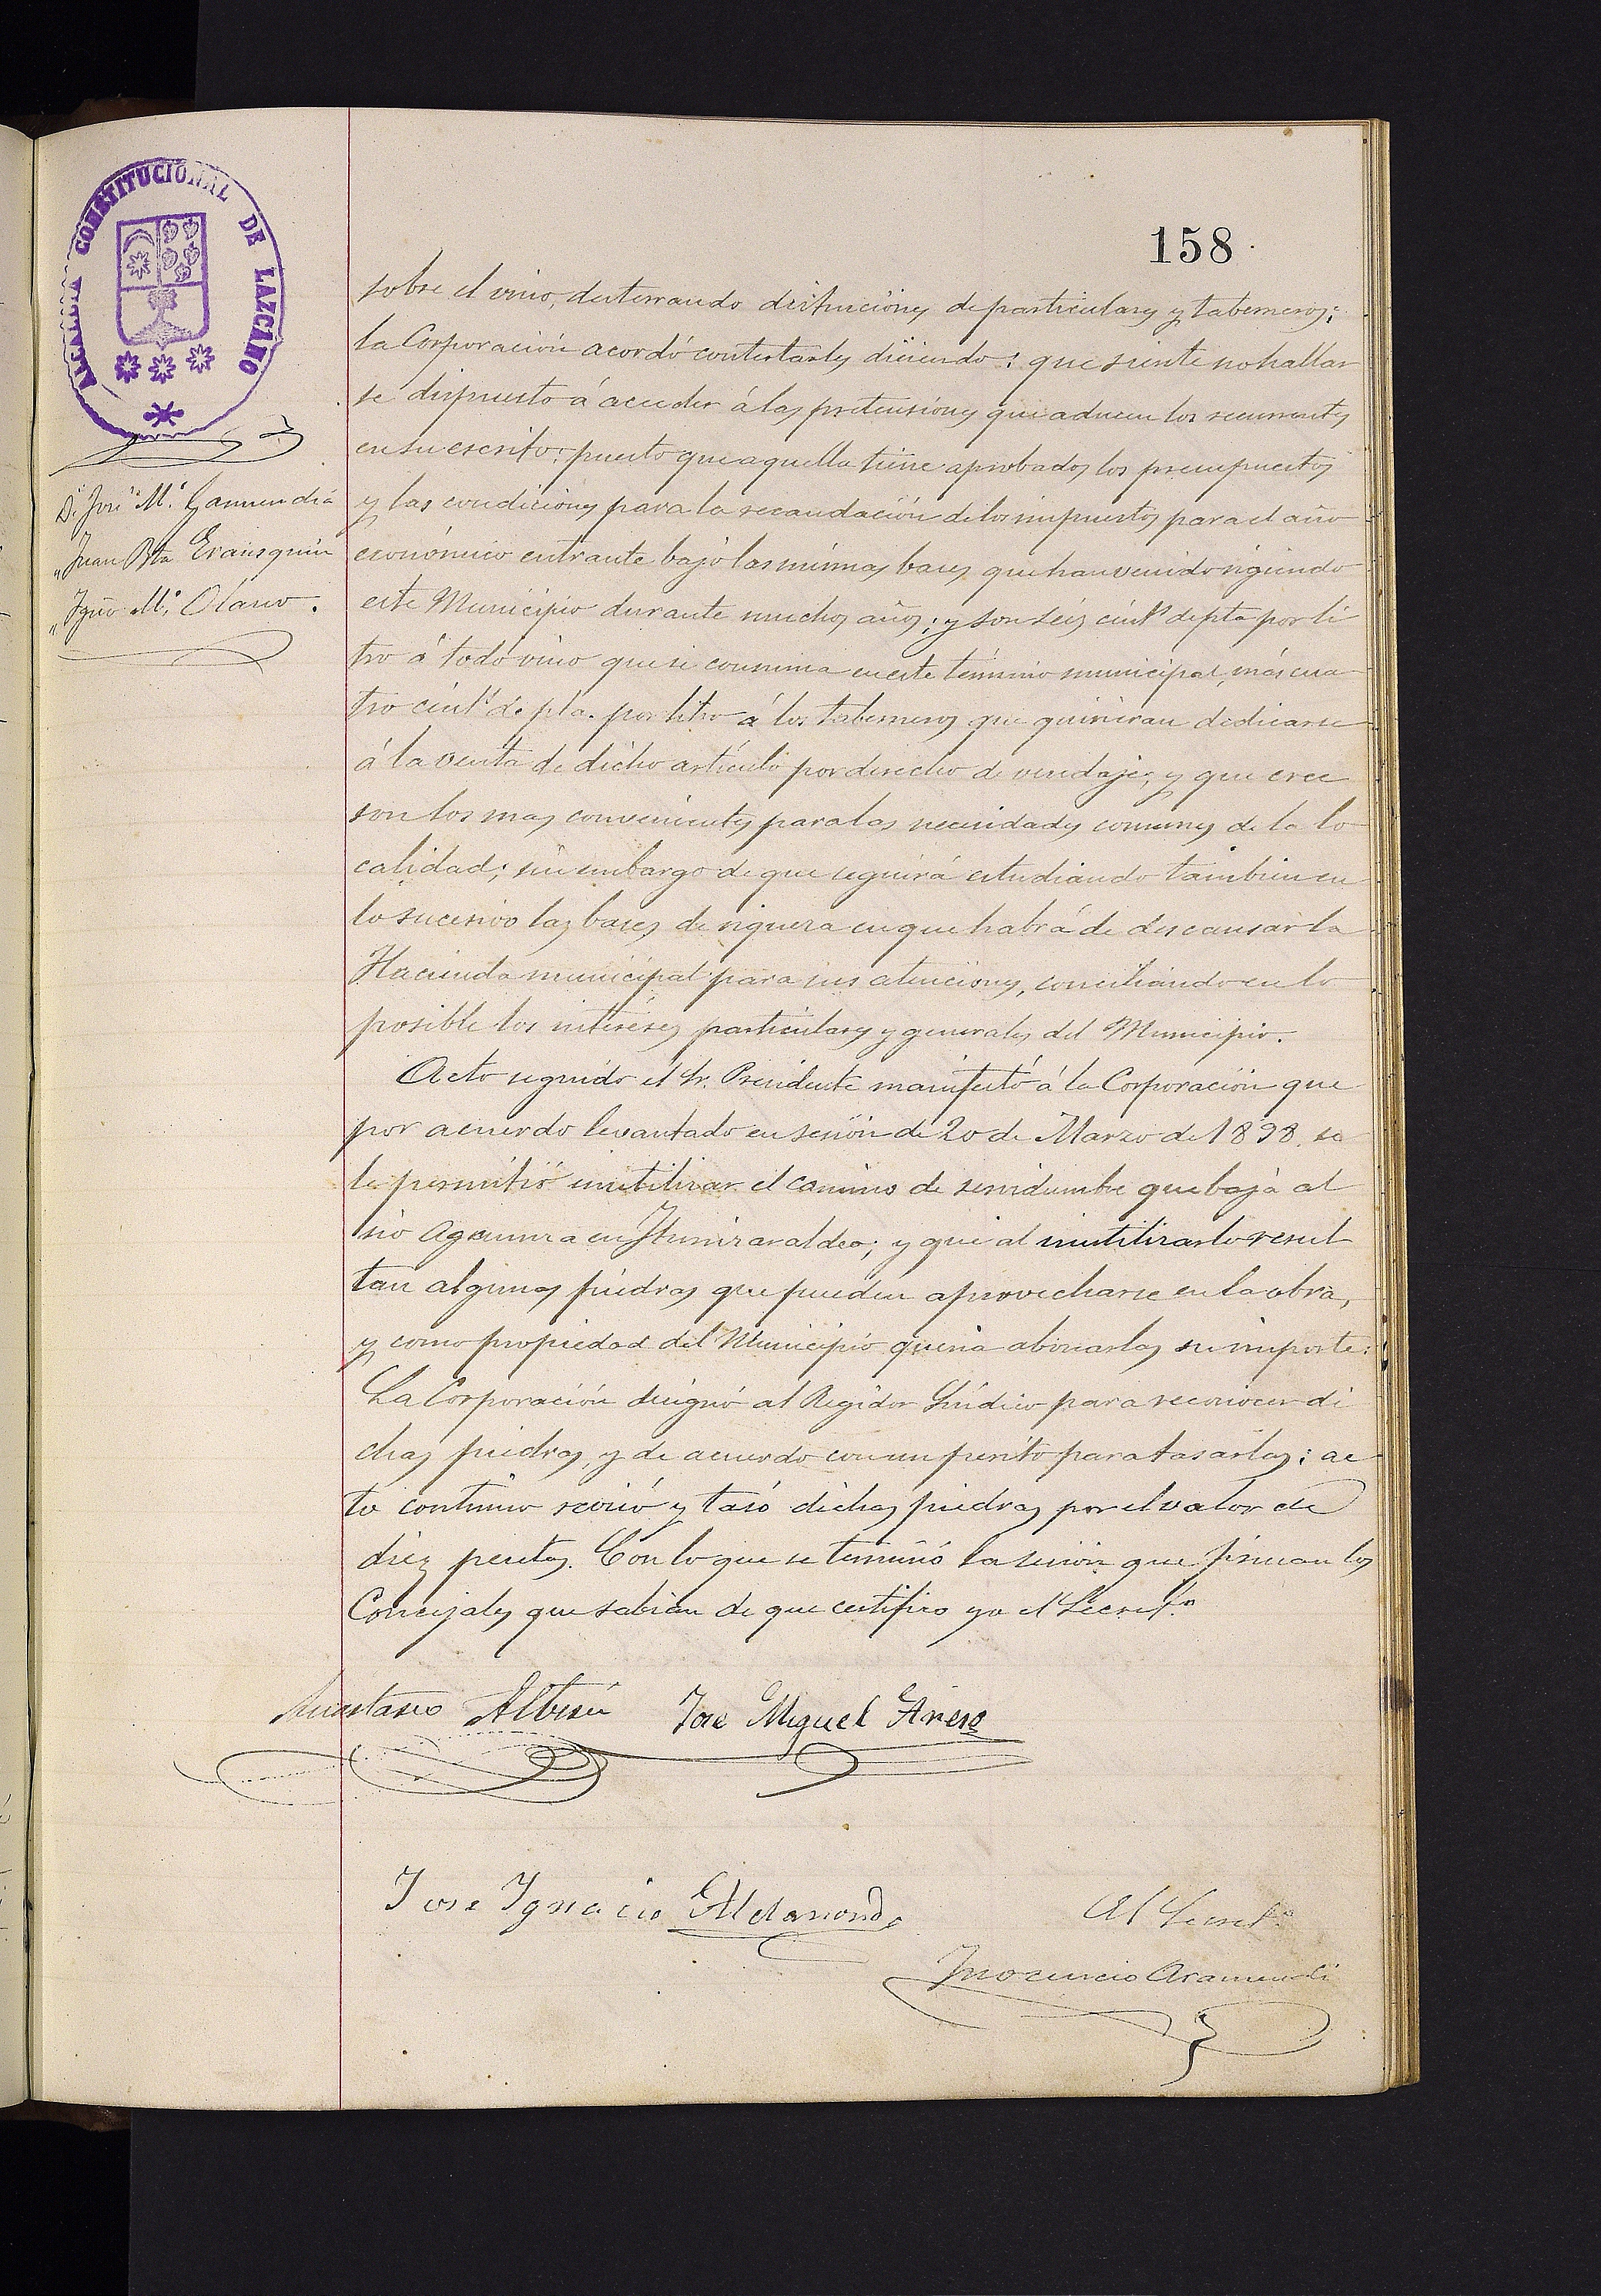 158
ALCALDIA CONSTITUCIONAL DE LAZCANO
D. José Mª Garmendia
" Juan Bta Erausquin
" Igno Mª Olano.
sobre el vino, desterrando distinciónes de particulares y taberneros;
la Corporación acordó contestarles diciendo: que siente no hallar
se dispuesto á acceder á las pretensiónes que aducen los recurrentes
en su escrito; puesto que aquella tiene aprobados los presupuestos
y las condiciónes para la recaudación de los impuestos para el año
económico entrante bajo las mismas bases que han venido rigiendo
este Municipio durante muchos años; y son seis cént.s de pta por li
tro á todo vino que se consuma en este término municipal, más cua
tro cént.s de pta. por litro á los taberneros que quisieran dedicarse
á la venta de dicho artículo por derecho de vendaje; y que cree
son los mas convenientes para las necesidades comunes de la lo
calidad; sin embargo de que seguirá estudiando tambien en
lo sucesivo las bases de riquera en que habrá de descansar la
Hacienda municipal para sus atenciones, conciliando en lo
posible los intereses particulares y generales del Municipio.
Acto seguido el Sr. Presidente manifestó á la Corporación que
por acuerdo levantado en sesión de 20 de Marzo de 1898. se
le permitió inutilizar el camino de servidumbre que baja al
rio Agaunza en; y que al inutilizarlo resul
tan algunas piedras que pueden aprovecharse en la obra,
y como propiedad del Municipio queria abonarlas su importe:
La Corporación designó al Regidor Síndico para reconocer di
chas piedras, y de acuerdo con un perito para tasarlas; ac
to continuo reconó y tasó dichas piedras por el valor de
diez pesetas. Con lo que se terminó la sesión que firman los
Concejales que sabian de que certifico yo el Secret.º
Anastasio Albisu Jose Miguel Areso
Jose Ignacio Aldasoro
El Secret.º
Inocencio Aramendi